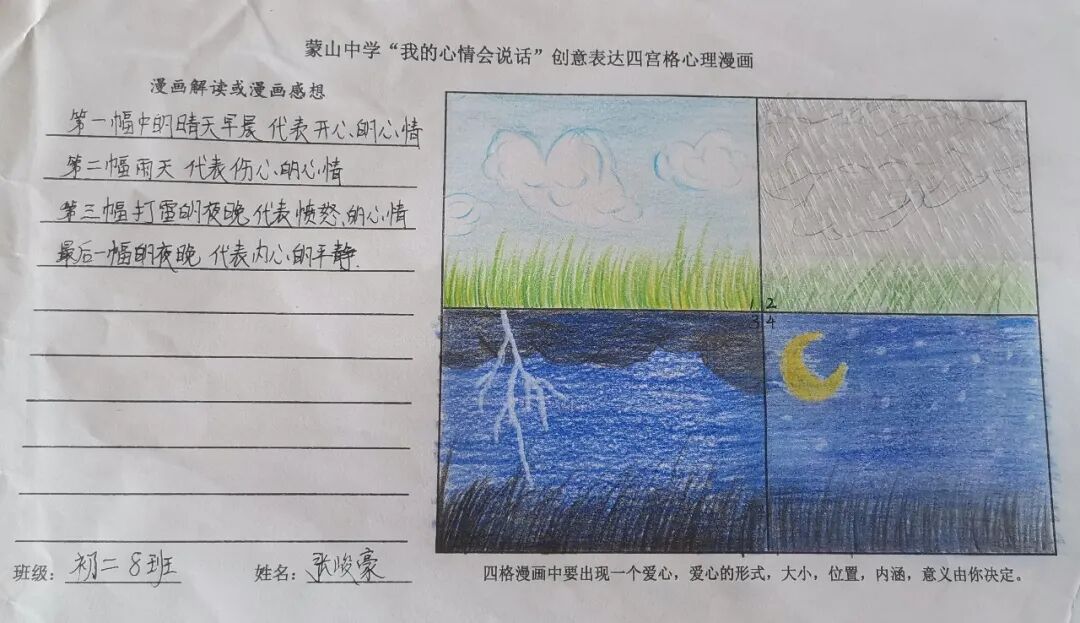 蒙山中学“我的心情会说话”创意表达四宫格心理漫画
漫画解读或漫画感想
第一幅中的晴天早晨 代表开心的心情
第二幅雨天 代表伤心的心情
第三幅打雷的夜晚 代表愤怒的心情
最后一幅的夜晚 代表内心的平静.
1 2
3 4
班级：初二8班 姓名：张峻豪
四格漫画中要出现一个爱心，爱心的形式，大小，位置，内涵，意义由你决定。